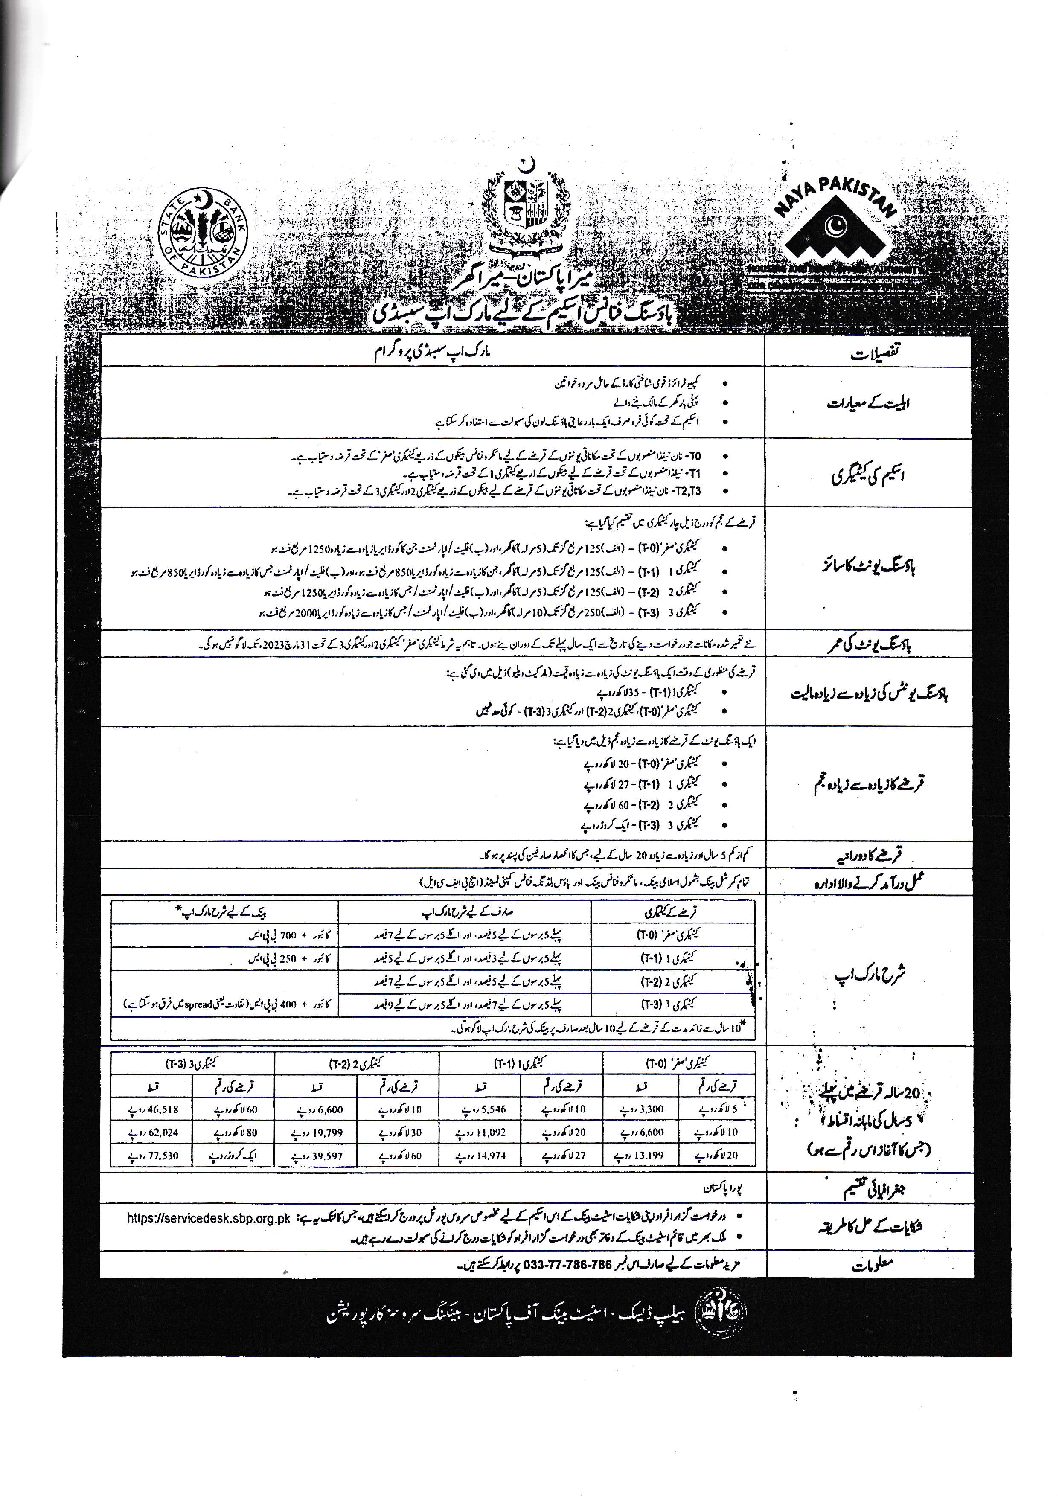 STATE BANK OF PAKISTAN
NAYA PAKISTAN
میرا پاکستان - میرا گھر
ہاؤسنگ فنانس اسکیم کے لیے مارک اپ سبسڈی
تفصیلات
مارک اپ سبسڈی پروگرام
اہلیت کے معیارات
• کمپیوٹرائزڈ قومی شناختی کارڈ کے حامل مرد و خواتین
• پہلی بار گھر کے مالک بننے والے
• اسکیم کے تحت کوئی فرد صرف ایک بار رعایتی ہاؤسنگ لون کی سہولت سے استفادہ کر سکتا ہے
اسکیم کی کیٹیگری
• T0- نان نیفڈا منصوبوں کے تحت مکاناتی یونٹوں کے قرضے کے لیے مائیکرو فنانس بینکوں کے ذریعے کیٹیگری 'صفر' کے تحت قرضہ دستیاب ہے۔
• T1- نیفڈا منصوبوں کے تحت قرضے کے لیے بینکوں کے ذریعے کیٹیگری 1 کے تحت قرضہ دستیاب ہے۔
• T2,T3- نان نیفڈا منصوبوں کے تحت مکاناتی یونٹوں کے قرضے کے لیے بینکوں کے ذریعے کیٹیگری 2 اور کیٹیگری 3 کے تحت قرضہ دستیاب ہے۔
ہاؤسنگ یونٹ کا سائز
قرضے کے حجم کو درج ذیل چار کیٹیگری میں تقسیم کیا گیا ہے:
• کیٹیگری 'صفر' (T-0) – (الف) 125 مربع گز تک (5 مرلہ) کا گھر، اور (ب) فلیٹ/اپارٹمنٹ جن کا کورڈ ایریا زیادہ سے زیادہ 1250 مربع فٹ ہو
• کیٹیگری 1 (T-1) – (الف) 125 مربع گز تک (5 مرلہ) کا گھر، جن کا زیادہ سے زیادہ کورڈ ایریا 850 مربع فٹ ہو، اور (ب) فلیٹ/اپارٹمنٹ جس کا زیادہ سے زیادہ کورڈ ایریا 850 مربع فٹ ہو
• کیٹیگری 2 (T-2) – (الف) 125 مربع گز تک (5 مرلہ) کا گھر، اور (ب) فلیٹ/اپارٹمنٹ/جس کا زیادہ سے زیادہ کورڈ ایریا 1250 مربع فٹ ہو
• کیٹیگری 3 (T-3) – (الف) 250 مربع گز تک (10 مرلہ) کا گھر، اور (ب) فلیٹ/اپارٹمنٹ/جس کا زیادہ سے زیادہ کورڈ ایریا 2000 مربع فٹ ہو
ہاؤسنگ یونٹ کی عمر
نئے تعمیر شدہ مکانات جو درخواست دینے کی تاریخ سے ایک سال پہلے تک کے دوران بنے ہوں۔ تاہم یہ شرط کیٹیگری 'صفر' کیٹیگری 2 اور کیٹیگری 3 کے تحت 31 مارچ 2023ء تک لاگو نہیں ہوگی۔
ہاؤسنگ یونٹس کی زیادہ سے زیادہ مالیت
قرضے کی منظوری کے وقت ایک ہاؤسنگ یونٹ کی زیادہ سے زیادہ قیمت (مارکیٹ ویلیو) ذیل میں دی گئی ہے:
• کیٹیگری 1 (T-1) – 35 لاکھ روپے
• کیٹیگری 'صفر' (T-0)، کیٹیگری 2 (T-2) اور کیٹیگری 3 (T-3) - کوئی حد نہیں
قرضے کا زیادہ سے زیادہ حجم
ایک ہاؤسنگ یونٹ کے قرضے کا زیادہ سے زیادہ حجم ذیل میں دیا گیا ہے:
• کیٹیگری 'صفر' (T-0) – 20 لاکھ روپے
• کیٹیگری 1 (T-1) – 27 لاکھ روپے
• کیٹیگری 2 (T-2) – 60 لاکھ روپے
• کیٹیگری 3 (T-3) – ایک کروڑ روپے
قرضے کا دورانیہ
کم از کم 5 سال اور زیادہ سے زیادہ 20 سال کے لیے، جس کا انحصار صارفین کی پسند پر ہوگا۔
عمل درآمد کرنے والا ادارہ
تمام کمرشل بینک بشمول اسلامی بینک، مائکرو فنانس بینک اور ہاؤس بلڈنگ فنانس کمپنی لمیٹڈ (ایچ بی ایف سی ایل)
شرح مارک اپ
قرضے کے کیٹیگری | صارف کے لیے شرح مارک اپ | بینک کے لیے شرح مارک اپ*
کیٹیگری 'صفر' (T-0) | پہلے 5 برسوں کے لیے 5 فیصد، اور اگلے 5 برسوں کے لیے 7 فیصد | کائبور + 700 بی پی ایس
کیٹیگری 1 (T-1) | پہلے 5 برسوں کے لیے 3 فیصد، اور اگلے 5 برسوں کے لیے 5 فیصد | کائبور + 250 بی پی ایس
کیٹیگری 2 (T-2) | پہلے 5 برسوں کے لیے 5 فیصد، اور اگلے 5 برسوں کے لیے 7 فیصد
کیٹیگری 3 (T-3) | پہلے 5 برسوں کے لیے 7 فیصد، اور اگلے 5 برسوں کے لیے 9 فیصد | کائبور + 400 بی پی ایس (تفاوت یعنی spread میں فرق ہو سکتا ہے)
*10 سال سے زائد مدت کے قرضے کے لیے 10 سال بعد صارف پر بینک کی شرح مارک اپ لاگو ہوگی۔
20 سالہ قرضے میں پہلے
5 سال کی ماہانہ اقساط
(جس کا آغاز اس رقم سے ہو)
کیٹیگری 'صفر' (T-0) | کیٹیگری 1 (T-1) | کیٹیگری 2 (T-2) | کیٹیگری 3 (T-3)
قرضے کی رقم | قسط | قرضے کی رقم | قسط | قرضے کی رقم | قسط | قرضے کی رقم | قسط
5 لاکھ روپے | 3,300 روپے | 10 لاکھ روپے | 5,546 روپے | 10 لاکھ روپے | 6,600 روپے | 60 لاکھ روپے | 46,518 روپے
10 لاکھ روپے | 6,600 روپے | 20 لاکھ روپے | 11,092 روپے | 30 لاکھ روپے | 19,799 روپے | 80 لاکھ روپے | 62,024 روپے
20 لاکھ روپے | 13,199 روپے | 27 لاکھ روپے | 14,974 روپے | 60 لاکھ روپے | 39,597 روپے | ایک کروڑ روپے | 77,530 روپے
جغرافیائی تقسیم
پورا پاکستان
شکایات کے حل کا طریقہ
• درخواست گزار افراد اپنی شکایات اسٹیٹ بینک کے اس اسکیم کے لیے مخصوص سروس پورٹل پر درج کرا سکتے ہیں، جس کا لنک یہ ہے: https://servicedesk.sbp.org.pk
• ملک بھر میں قائم اسٹیٹ بینک کے دفاتر بھی درخواست گزار افراد کو شکایات درج کرانے کی سہولت دے رہے ہیں۔
معلومات
مزید معلومات کے لیے صارف اس نمبر 033-77-786-786 پر رابطہ کر سکتے ہیں۔
ہیلپ ڈیسک - اسٹیٹ بینک آف پاکستان - بینکنگ سروسز کارپوریشن